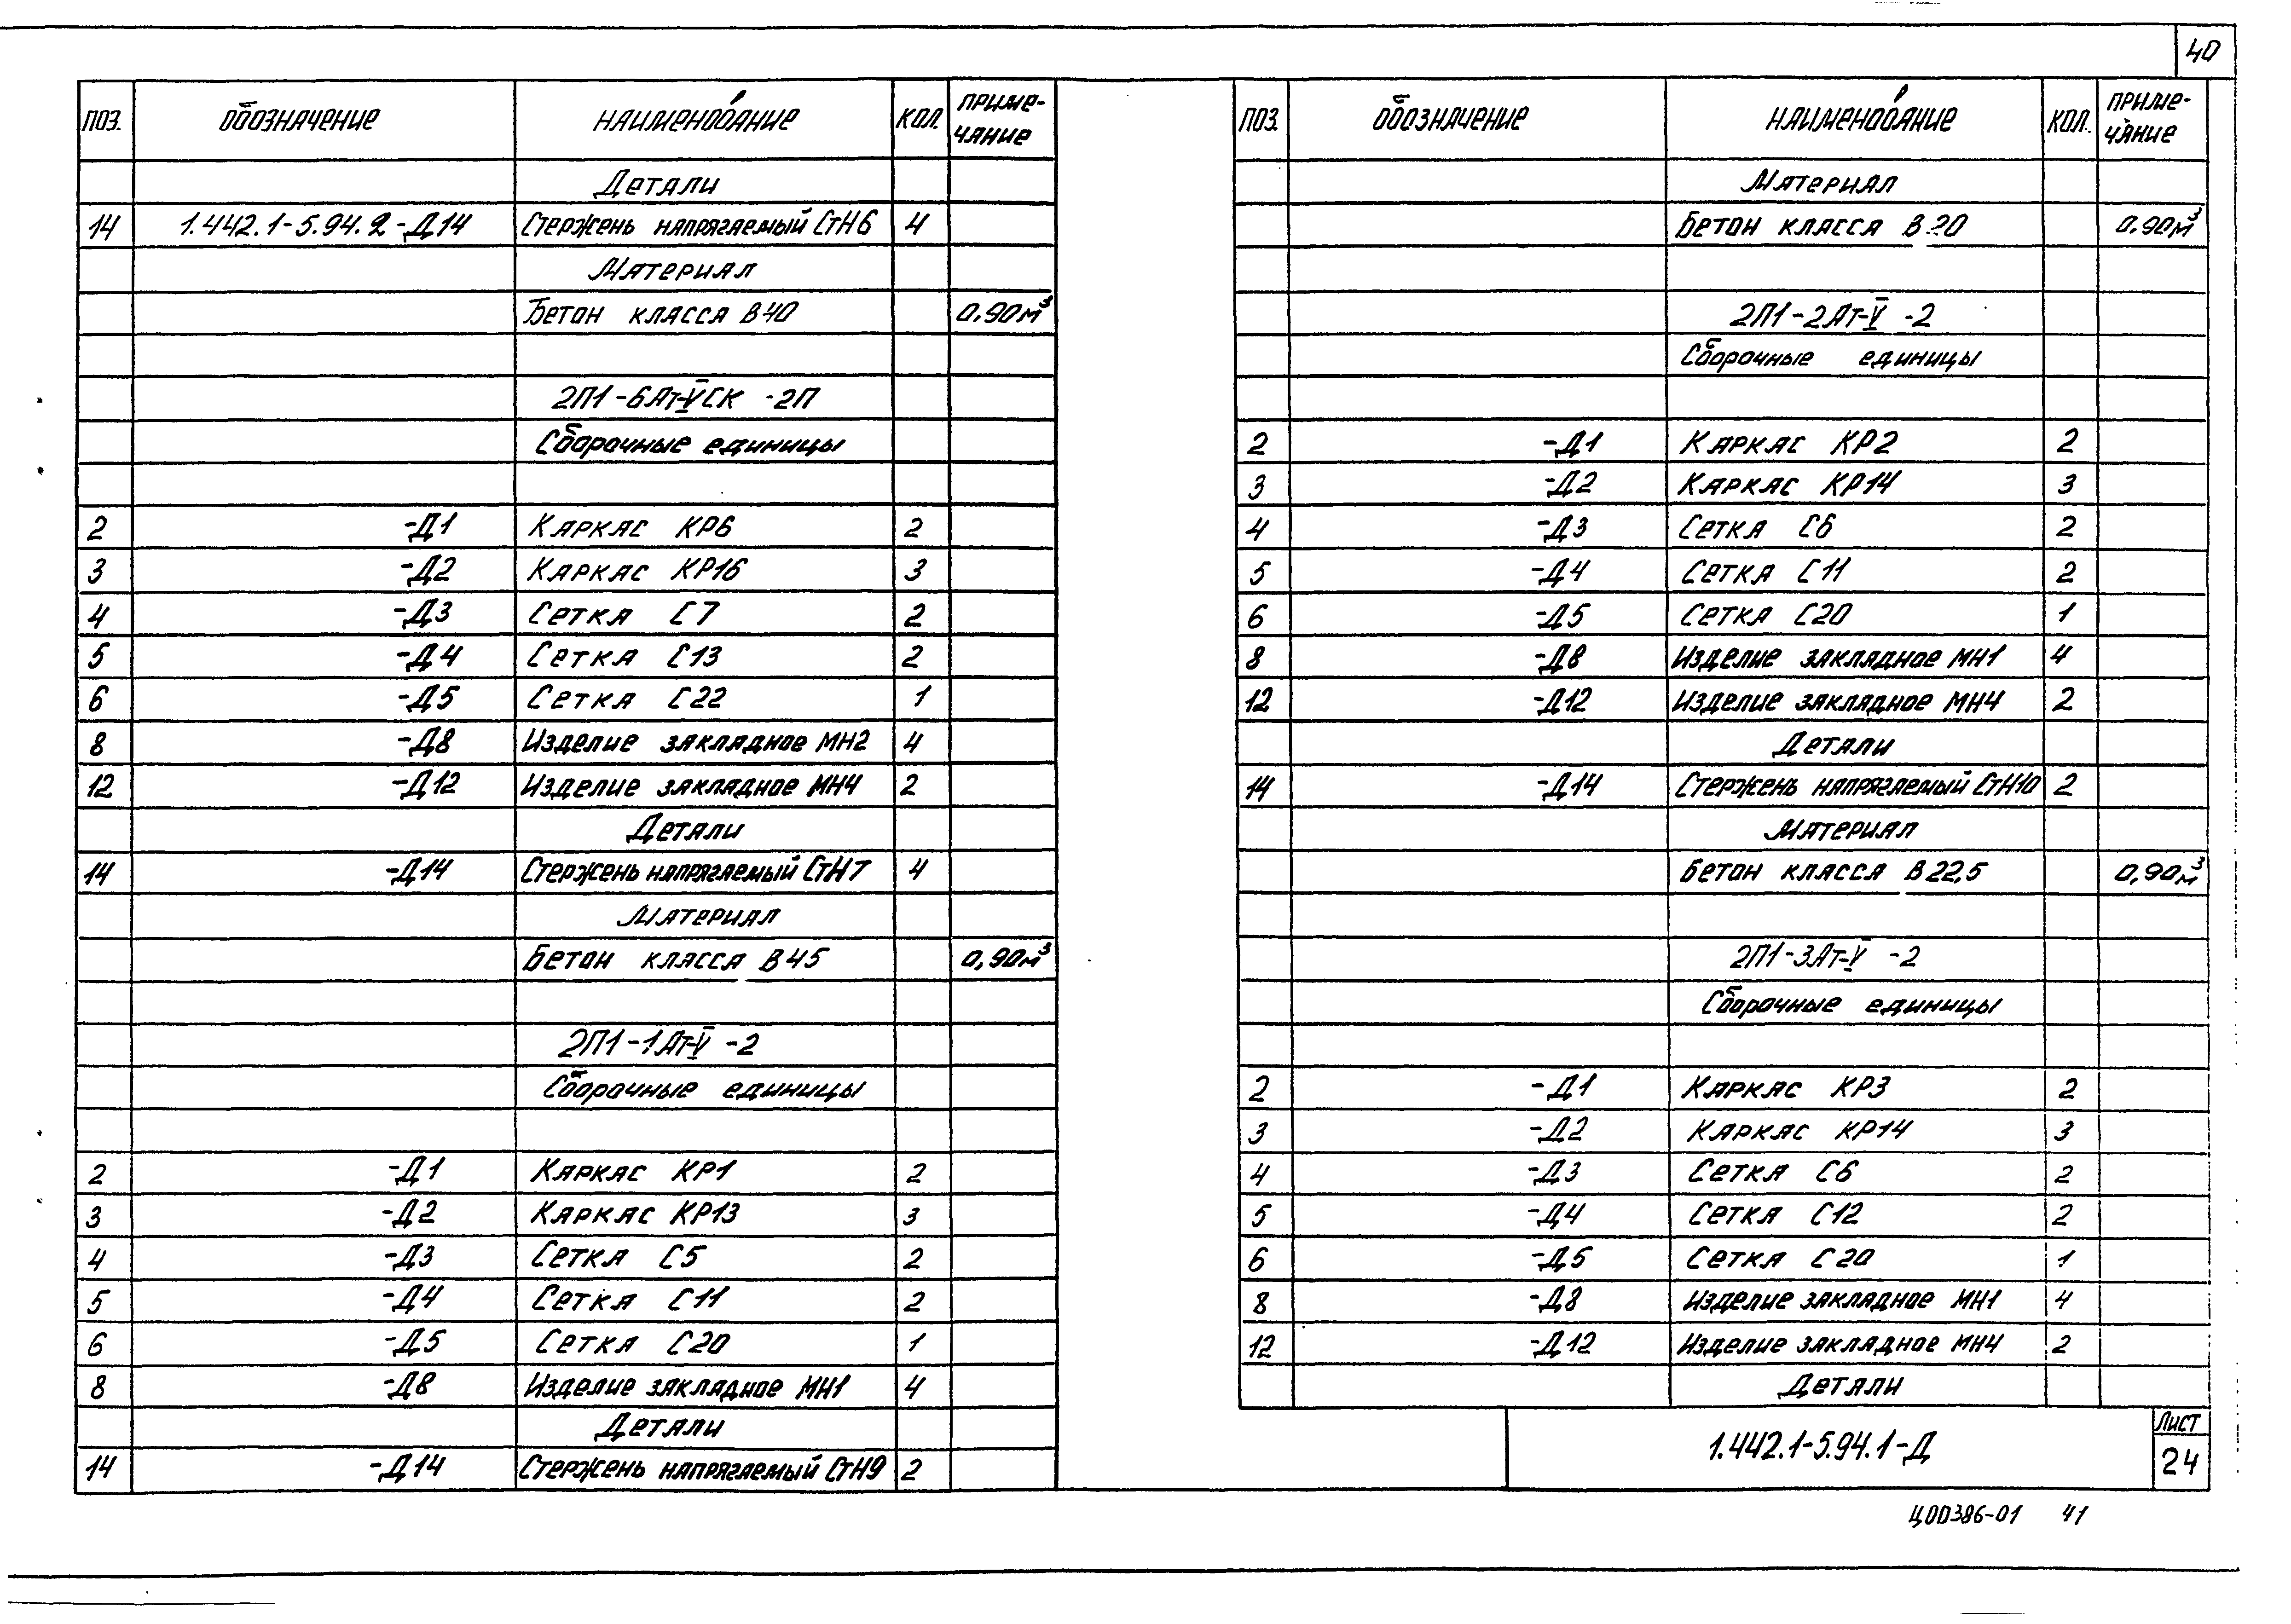 40
ПОЗ. ОБОЗНАЧЕНИЕ НАИМЕНОВАНИЕ КОЛ. ПРИМЕ-
ЧАНИЕ
Детали
14 1.442.1-5.94.2-Д14 Стержень напрягаемый СтН6 4
Материал
Бетон класса В40 0.90м³
2П1-6Ат-VСК -2П
Сборочные единицы
2 -Д1 Каркас КР6 2
3 -Д2 Каркас КР16 3
4 -Д3 Сетка С7 2
5 -Д4 Сетка С13 2
6 -Д5 Сетка С22 1
8 -Д8 Изделие закладное МН2 4
12 -Д12 Изделие закладное МН4 2
Детали
14 -Д14 Стержень напрягаемый СтН7 4
Материал
Бетон класса В45 0,90м³
2П1-1Ат-V -2
Сборочные единицы
2 -Д1 Каркас КР1 2
3 -Д2 Каркас КР13 3
4 -Д3 Сетка С5 2
5 -Д4 Сетка С11 2
6 -Д5 Сетка С20 1
8 -Д8 Изделие закладное МН1 4
Детали
14 -Д14 Стержень напрягаемый СтН9 2
ПОЗ. ОБОЗНАЧЕНИЕ НАИМЕНОВАНИЕ КОЛ. ПРИМЕ-
ЧАНИЕ
Материал
Бетон класса В20 0.90м³
2П1-2Ат-V -2
Сборочные единицы
2 -Д1 Каркас КР2 2
3 -Д2 Каркас КР14 3
4 -Д3 Сетка С6 2
5 -Д4 Сетка С11 2
6 -Д5 Сетка С20 1
8 -Д8 Изделие закладное МН1 4
12 -Д12 Изделие закладное МН4 2
Детали
14 -Д14 Стержень напрягаемый СтН10 2
Материал
Бетон класса В22,5 0,90м³
2П1-3Ат-V -2
Сборочные единицы
2 -Д1 Каркас КР3 2
3 -Д2 Каркас КР14 3
4 -Д3 Сетка С6 2
5 -Д4 Сетка С12 2
6 -Д5 Сетка С20 1
8 -Д8 Изделие закладное МН1 4
12 -Д12 Изделие закладное МН4 2
Детали
1.442.1-5.94.1-Д
Лист
24
Ц00386-01 41